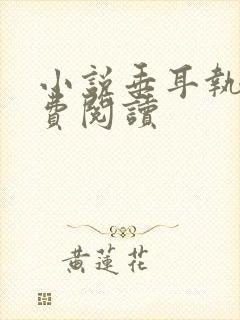 小說垂耳執
費閱讀
黃蓮花